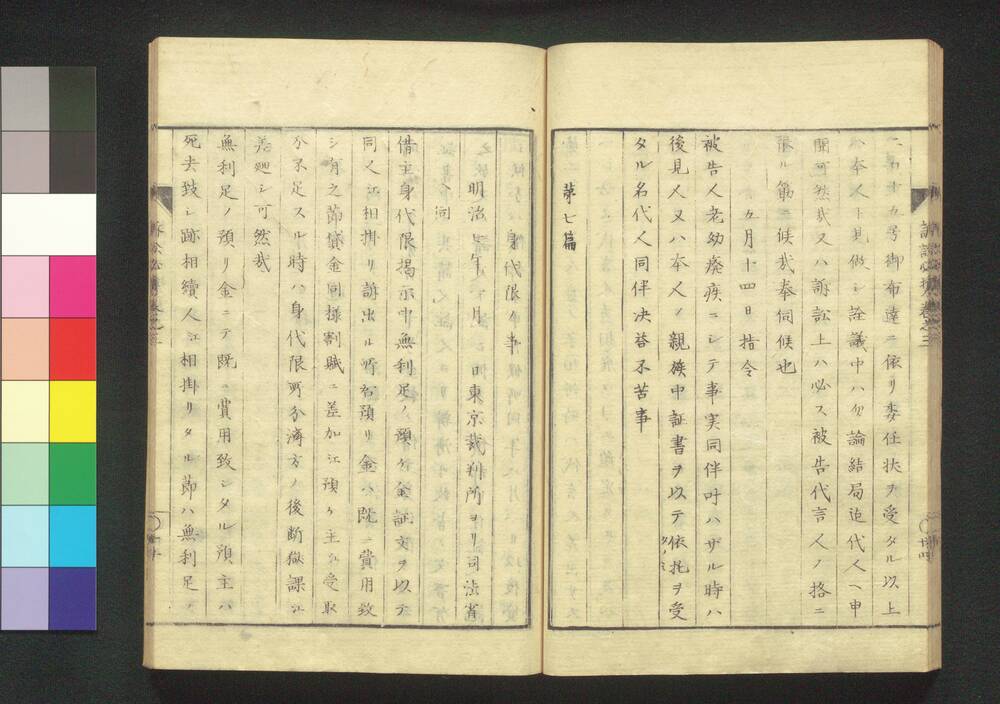 二百十五号御布達ニ依リ委任状ヲ受タル以上
ハ本人ト見做シ詮議中ハ勿論結局迄代人ヘ申
聞可然哉又ハ訴訟上ハ必ス被告代言人ノ格ニ
限ル筋ニ候哉奉伺候也
五月十四日指令
被告人老幼癈疾ニシテ事実同伴叶ハザル時ハ
後見人又ハ本人ノ親族中証書ヲ以テ依托ヲ受
タル名代人同伴决答不苦事
第七篇
身代限ノ事
明治 年 月 日東京裁判所ヨリ司法省
へ伺
借主身代限掲示中無利足ノ預ケ金証文ヲ以テ
同人江相掛リ訴出ル所右預リ金ハ既ニ費用致
シ有之節貸金同様割賦ニ差加江預ケ主江受取
方不足スル時ハ身代限所分済方ノ後断獄課江
差廻シ可然哉
無利足ノ預リ金ニテ既ニ費用致シタル預主ハ
死去致シ跡相續人江相掛リタル節ハ無利足ノ